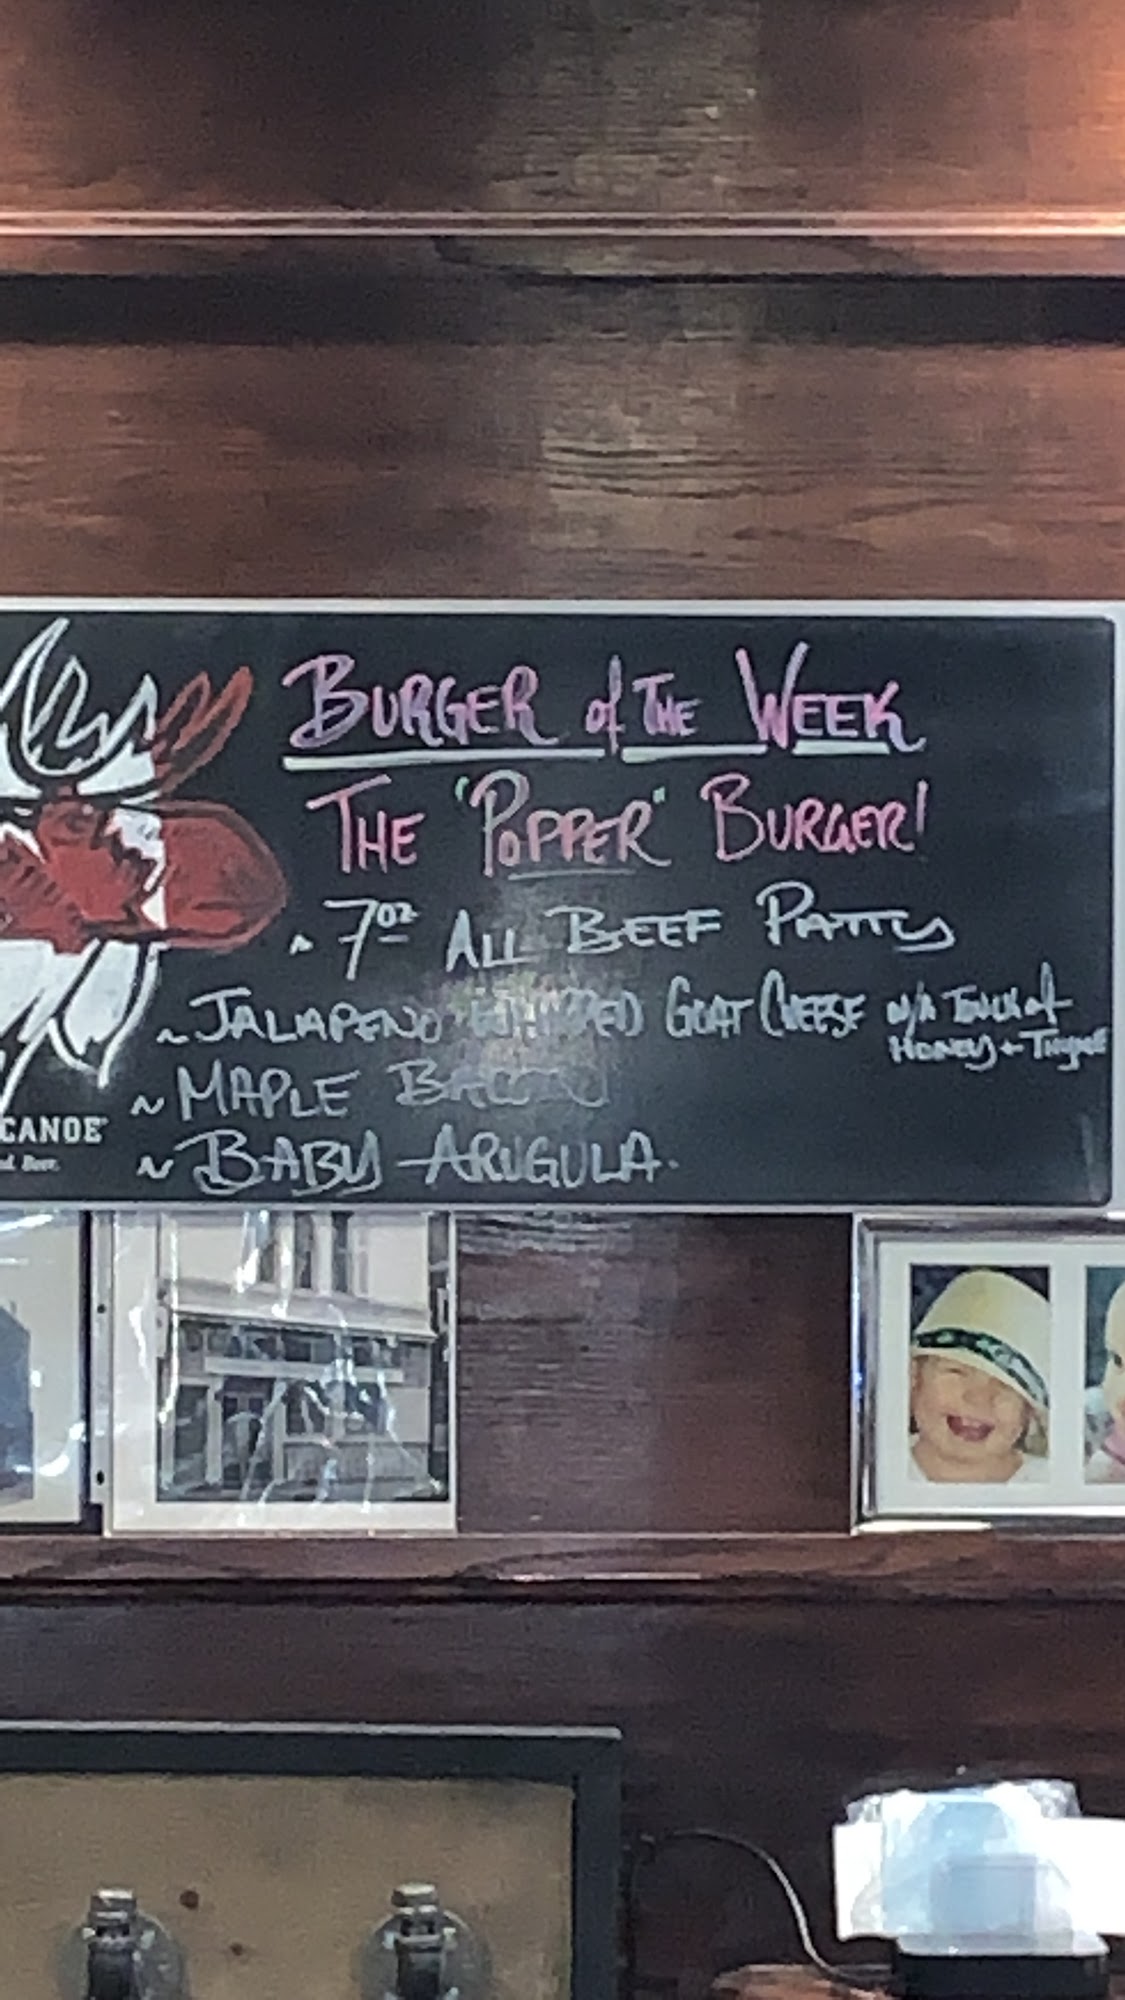 BURGER of THE WEEK
THE "POPPER" BURGER!
~ 7oz ALL BEEF PATTY
~ JALAPENO WHIPPED GOAT CHEESE w/A TOUCH of
HONEY + THYME
~ MAPLE BACON
CANOE
~ BABY ARUGULA.
d. Beer.